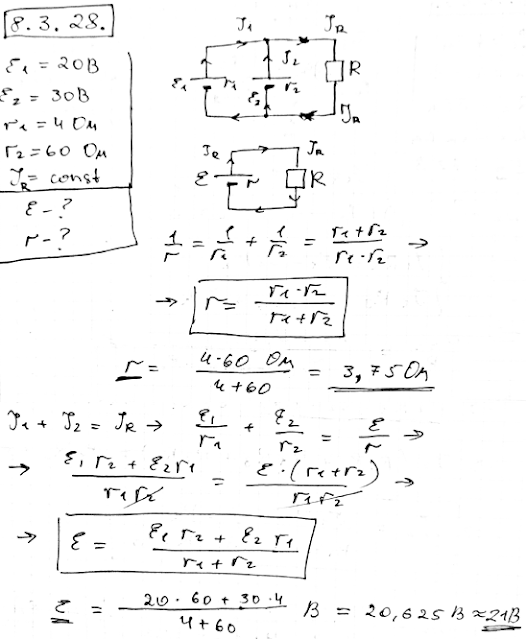 8.3.28.
ℰ₁ = 20В
ℰ₂ = 30В
r₁ = 4 Ом
r₂ = 60 Ом
J_R = const
ℰ - ?
r - ?
J₁ J_R
J₂
ℰ₁ r₁ ℰ₂ r₂ R
J_R
J_R J_R
ℰ r R
1/r = 1/r₁ + 1/r₂ = (r₁+r₂)/(r₁·r₂) →
→ r = (r₁·r₂)/(r₁+r₂)
r = (4·60 Ом)/(4+60) = 3,75 Ом
J₁ + J₂ = J_R → ℰ₁/r₁ + ℰ₂/r₂ = ℰ/r →
→ (ℰ₁ r₂ + ℰ₂ r₁)/(r₁ r₂) = (ℰ·(r₁+r₂))/(r₁ r₂) →
→ ℰ = (ℰ₁ r₂ + ℰ₂ r₁)/(r₁ + r₂)
ℰ = (20·60 + 30·4)/(4+60) В = 20,625 В ≈ 21В